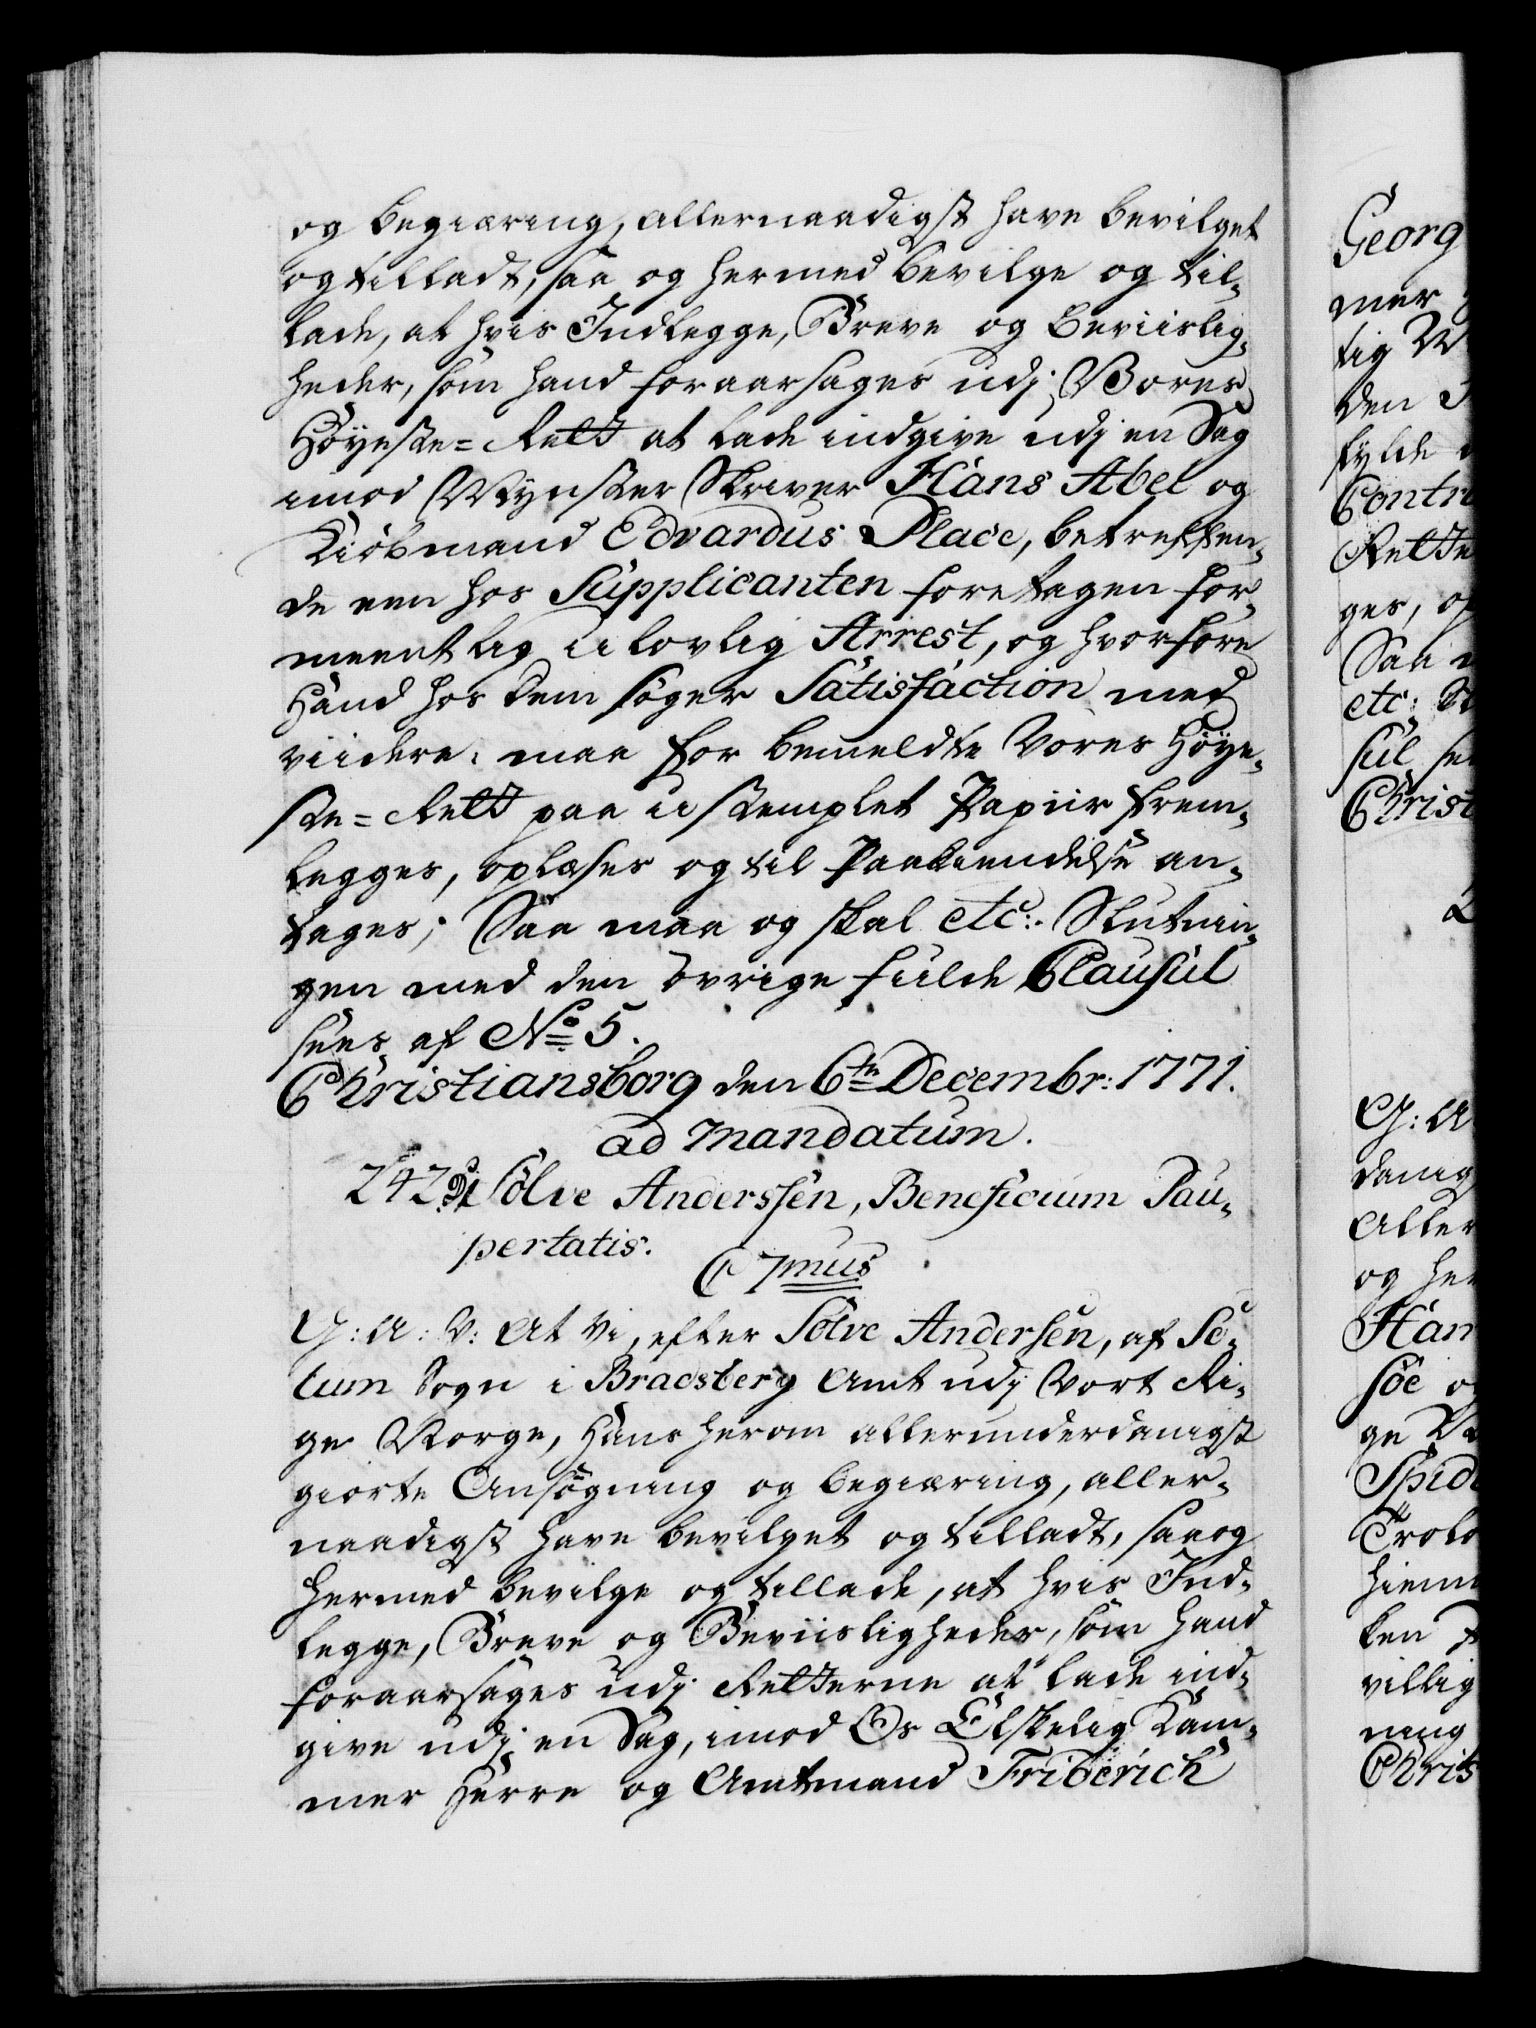 og begiæring, allernaadigst have bevilget
og tilladt, saa og hermed bevilge og til-
lade, at hvis Indlegge, Breve og beviislig-
heder, som hand foraarsages udj Vores
Høyeste-Rett at lade indgive udj en Sag
imod Mynster Skriver Hans Abel og
Kiøbmand Edvardus Place, betreffen-
de een hos Supplicanten foretagen for-
meentlig ulovlig Arrest, og hvorfore
Hand hos dem søger Satisfaction med
viidere. maa for bemeldte Vores Høye-
ste-Rett paa ustemplet Papiir frem-
legges, oplæses og til Paakiendelse an-
tages; Saa maa og skal etc: Slutnin-
gen med den øvrige fulde Clausul
sees af No 5.
Christiansborg den 6te Decembr: 1771.
ad mandatum.
242 Sölve Anderssen, Beneficium Pau-
pertatis.
C 7mus
G: A: V: At Vi, efter Sölve Andersen, af So-
lum Sogn i Bradsberg Amt udj Vort Ri-
ge Norge, Hans herom allerunderdanigst
giorte Ansøgning og begiæring, aller-
naadigst have bevilget og tilladt, saa og
hermed bevilge og tillade, at hvis Ind-
legge, Breve og Beviisligheder, som hand
foraarsages udj Retterne at lade ind-
give udj en Sag, imod Os Elskelig Kam-
mer Herre og Amtmand Friderich
Georg
mer
tig
den
fylde
Contra
Rette
ges,
Saa
etc:
sul
Christ
G: A
danig
Aller
og her
Han
söe
ge
Spid
Trolo
hiem
ken
villig
ning
Chris